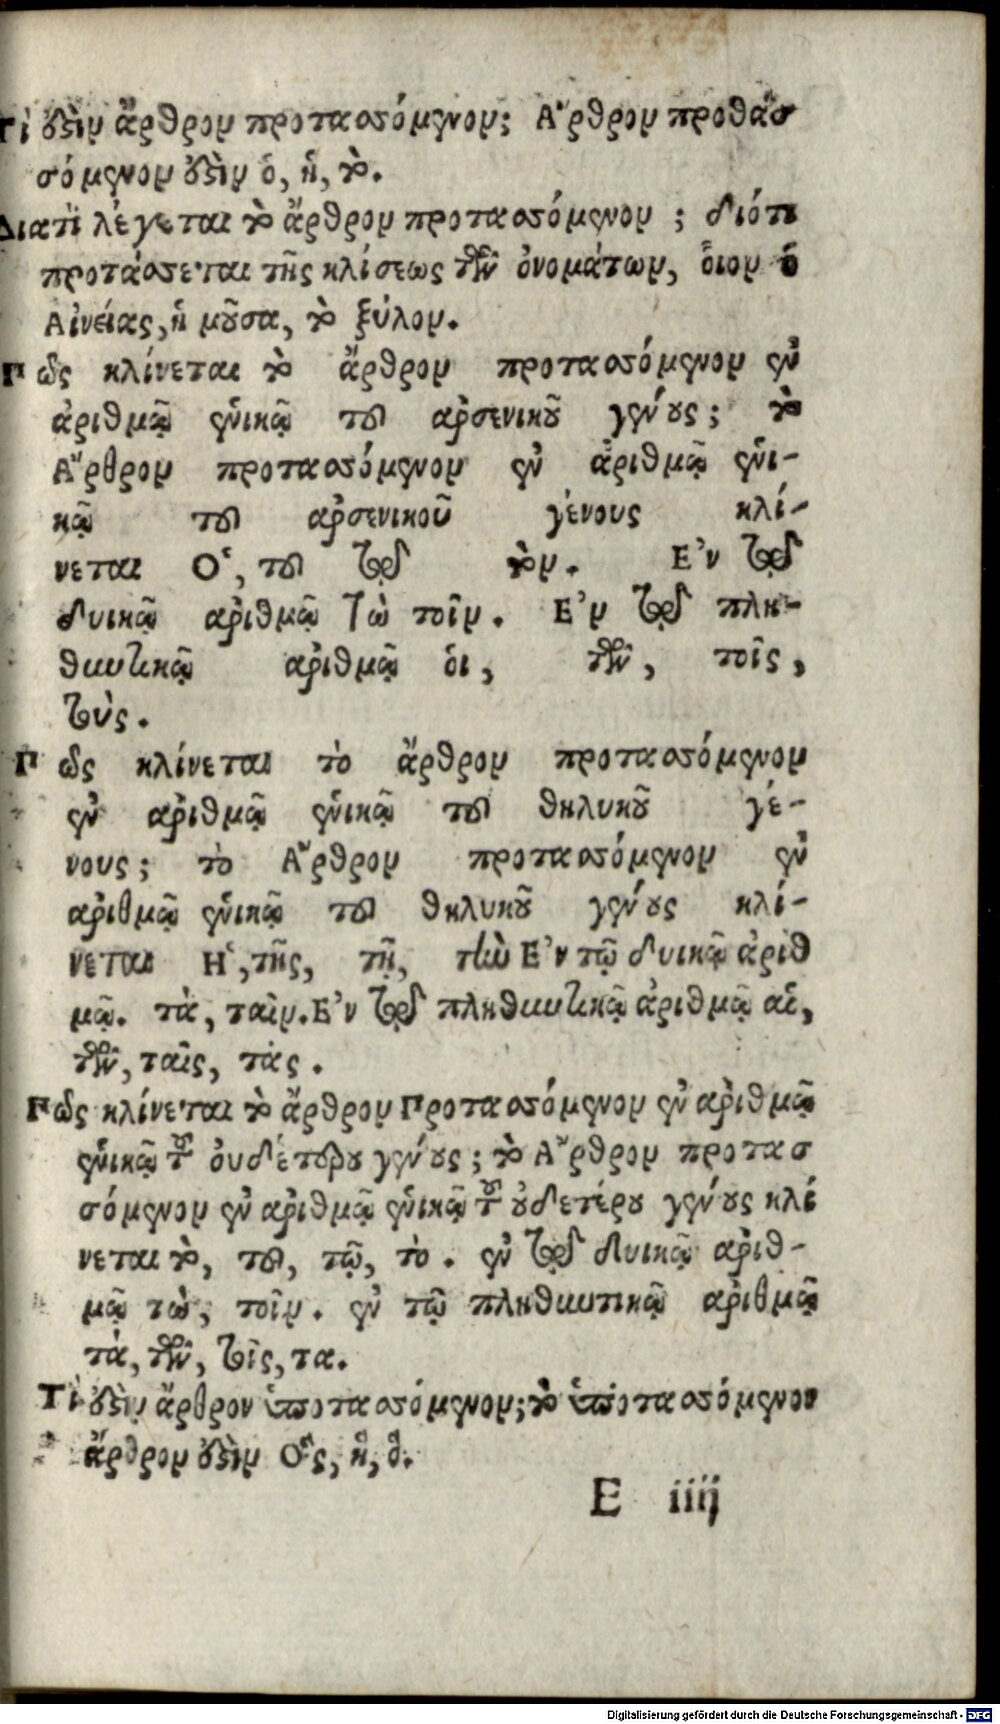 Τί ὅϐὶν ἄρθρον προτασσόμενον; Ἄρθρον προθασ
σόμενον ὅϐὶν ὁ, ἡ, τὸ.
Διατὶ λέγεται τὸ ἄρθρον προτασσόμενον; διότι
προτάσσεται τῆς κλίσεως τῶν ὀνομάτων, ὅιον ὁ
Αἰνείας, ἡ μοῦσα, τὸ ξύλον.
Πῶς κλίνεται τὸ ἄρθρον προτασσόμενον ἐν
ἀριθμῷ ἑνικῷ τοῦ ἀρσενικοῦ γένους; τὸ
Ἄρθρον προτασσόμενον ἐν ἀριθμῷ ἑνι-
κῷ τοῦ ἀρσενικοῦ γένους κλί-
νεται Ὁ, τοῦ τῷ τὸν. Ἐν τῷ
δυικῷ ἀριθμῷ τὼ τοῖν. Ἐν τῷ πλη-
θυντικῷ ἀριθμῷ ὁι, τῶν, τοῖς,
τοὺς.
Πῶς κλίνεται τὸ ἄρθρον προτασσόμενον
ἐν ἀριθμῷ ἑνικῷ τοῦ θηλυκοῦ γέ-
νους; τὸ Ἄρθρον προτασσόμενον ἐν
ἀριθμῷ ἑνικῷ τοῦ θηλυκοῦ γένους κλί-
νεται Ἡ, τῆς, τῇ, τὴν Ἐν τῷ δυικῷ ἀριθ
μῷ. τὰ, ταὶν. Ἐν τῷ πληθυντικῷ ἀριθμῷ αἱ,
τῶν, ταῖς, τὰς.
Πῶς κλίνεται τὸ ἄρθρον Προτασσόμενον ἐν ἀριθμῷ
ἑνικῷ τοῦ ὀυδέτερου γένους; τὸ Ἄρθρον προτασ
σόμενον ἐν ἀριθμῷ ἑνικῷ τοῦ οὐδετέρου γένους κλί
νεται τὸ, τοῦ, τῷ, τὸ. ἐν τῷ δυικῷ ἀριθ-
μῷ τὼ, τοῖν. ἐν τῷ πληθυντικῷ ἀριθμῷ
τὰ, τῶν, τοὶς, τα.
Τί ὅϐὶν ἄρθρον ὑποτασσόμενον; τὸ ὑποτασσόμενον
ἄρθρον ὅϐὶν Ὃς, ἣ, ὃ.
E iiij
Digitalisierung gefördert durch die Deutsche Forschungsgemeinschaft - DFG